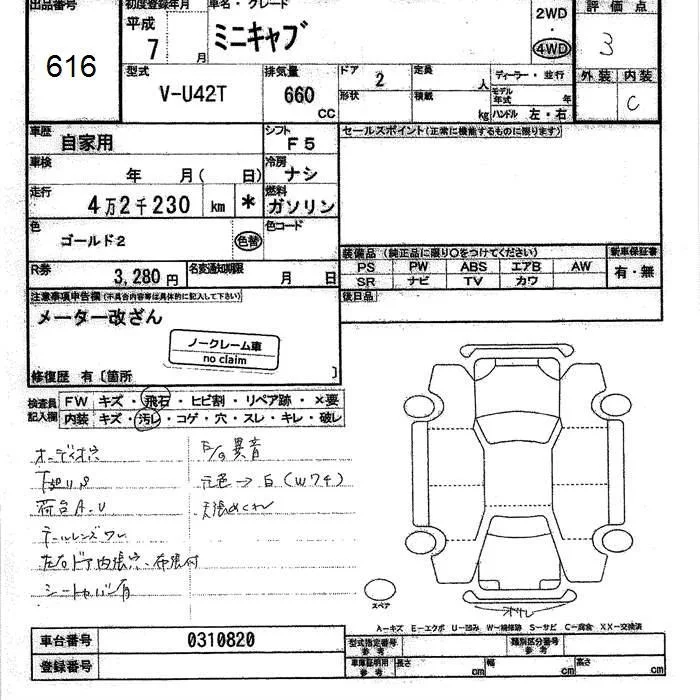 出品番号 初度登録年月 車名・グレード 2WD 評価点
616 平成 7 月 ミニキャブ 4WD 3
型式 V-U42T 排気量 660 CC ドア 2 形状 定員 人 積載 kg ディーラー・並行 モデル年式 年 ハンドル 左・右 外装 内装 C
車歴 自家用 シフト F5 セールスポイント(正常に機能するものに限ります)
車検 年 月( 日) 冷房 ナシ
走行 4万2千230 km * 燃料 ガソリン
色 ゴールド2 色替 色コード
装備品(純正品に限り○をつけてください) 新車保証書
PS PW ABS エアB AW 有・無
SR ナビ TV カワ
R券 3,280円 名変通知期限 月 日
後日品
注意事項申告欄(不具合内容等は具体的に記入して下さい)
メーター改ざん
ノークレーム車
no claim
修復歴 有〔箇所 〕
検査員記入欄 FW キズ・飛石・ヒビ割・リペア跡・×要
内装 キズ・汚レ・コゲ・穴・スレ・キレ・破レ
オーディオ穴 異音
元色→白(W74)
荷台A.U 天張めくれ
テールレンズワレ
左右ドア内張穴・布張付
シートカバー有
スペア
A-キズ E-エクボ U-凹み W-補修跡 S-サビ C-腐食 XX-交換済
車台番号 0310820 型式指定番号 参考 類別区分番号 参考
登録番号 車庫証明用 参考 長さ cm 幅 cm 高さ cm